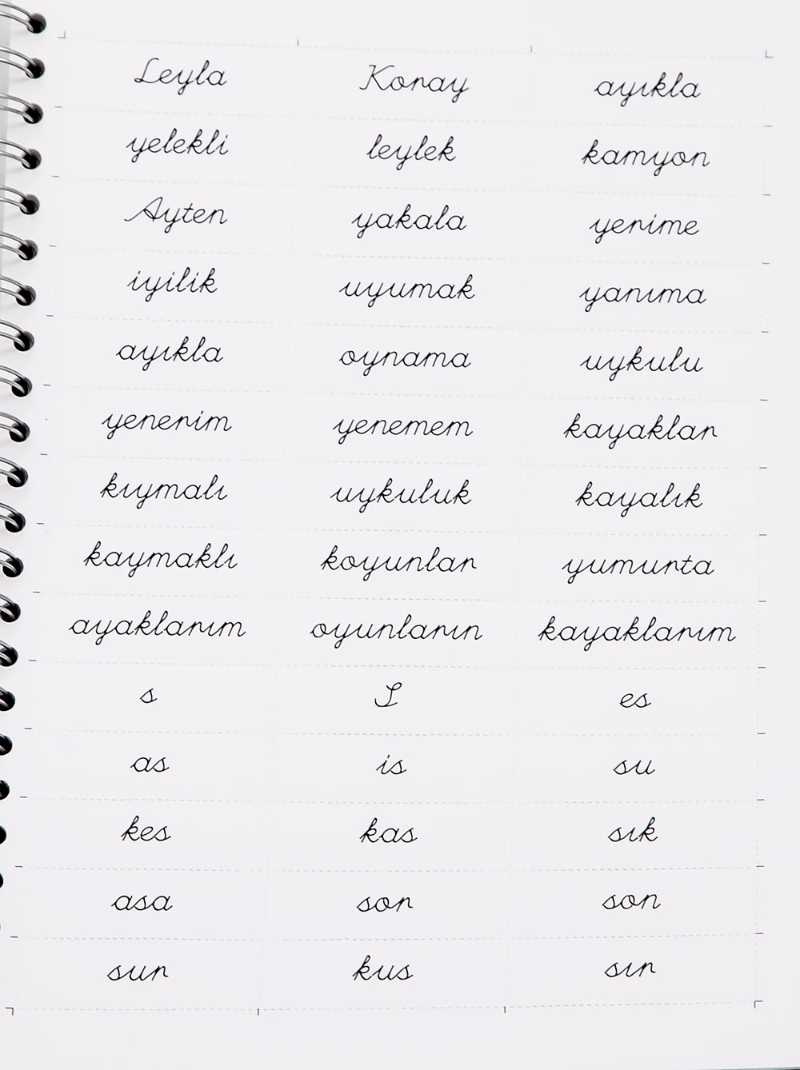 Leyla Koray ayıkla
yelekli leylek kamyon
Ayten yakala yerime
iyilik uyumak yanıma
ayıkla oynama uykulu
yenerim yenemem kayaklar
kıymalı uykuluk kayalık
kaymaklı koyunlar yumurta
ayaklarım oyunların kayaklarım
s S es
as is su
kes kas sık
asa sor son
sur kus sır